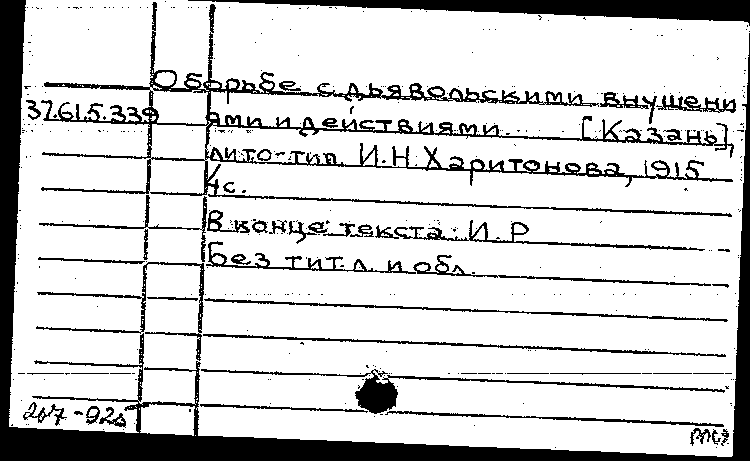 О борьбе с дьявольскими внушени
37.61.5.339 ями и действиями. [Казань],
лито-тип. И.Н. Харитонова, 1915
4с.
В конце текста: И.Р
Без тит. л. и обл.
207-925